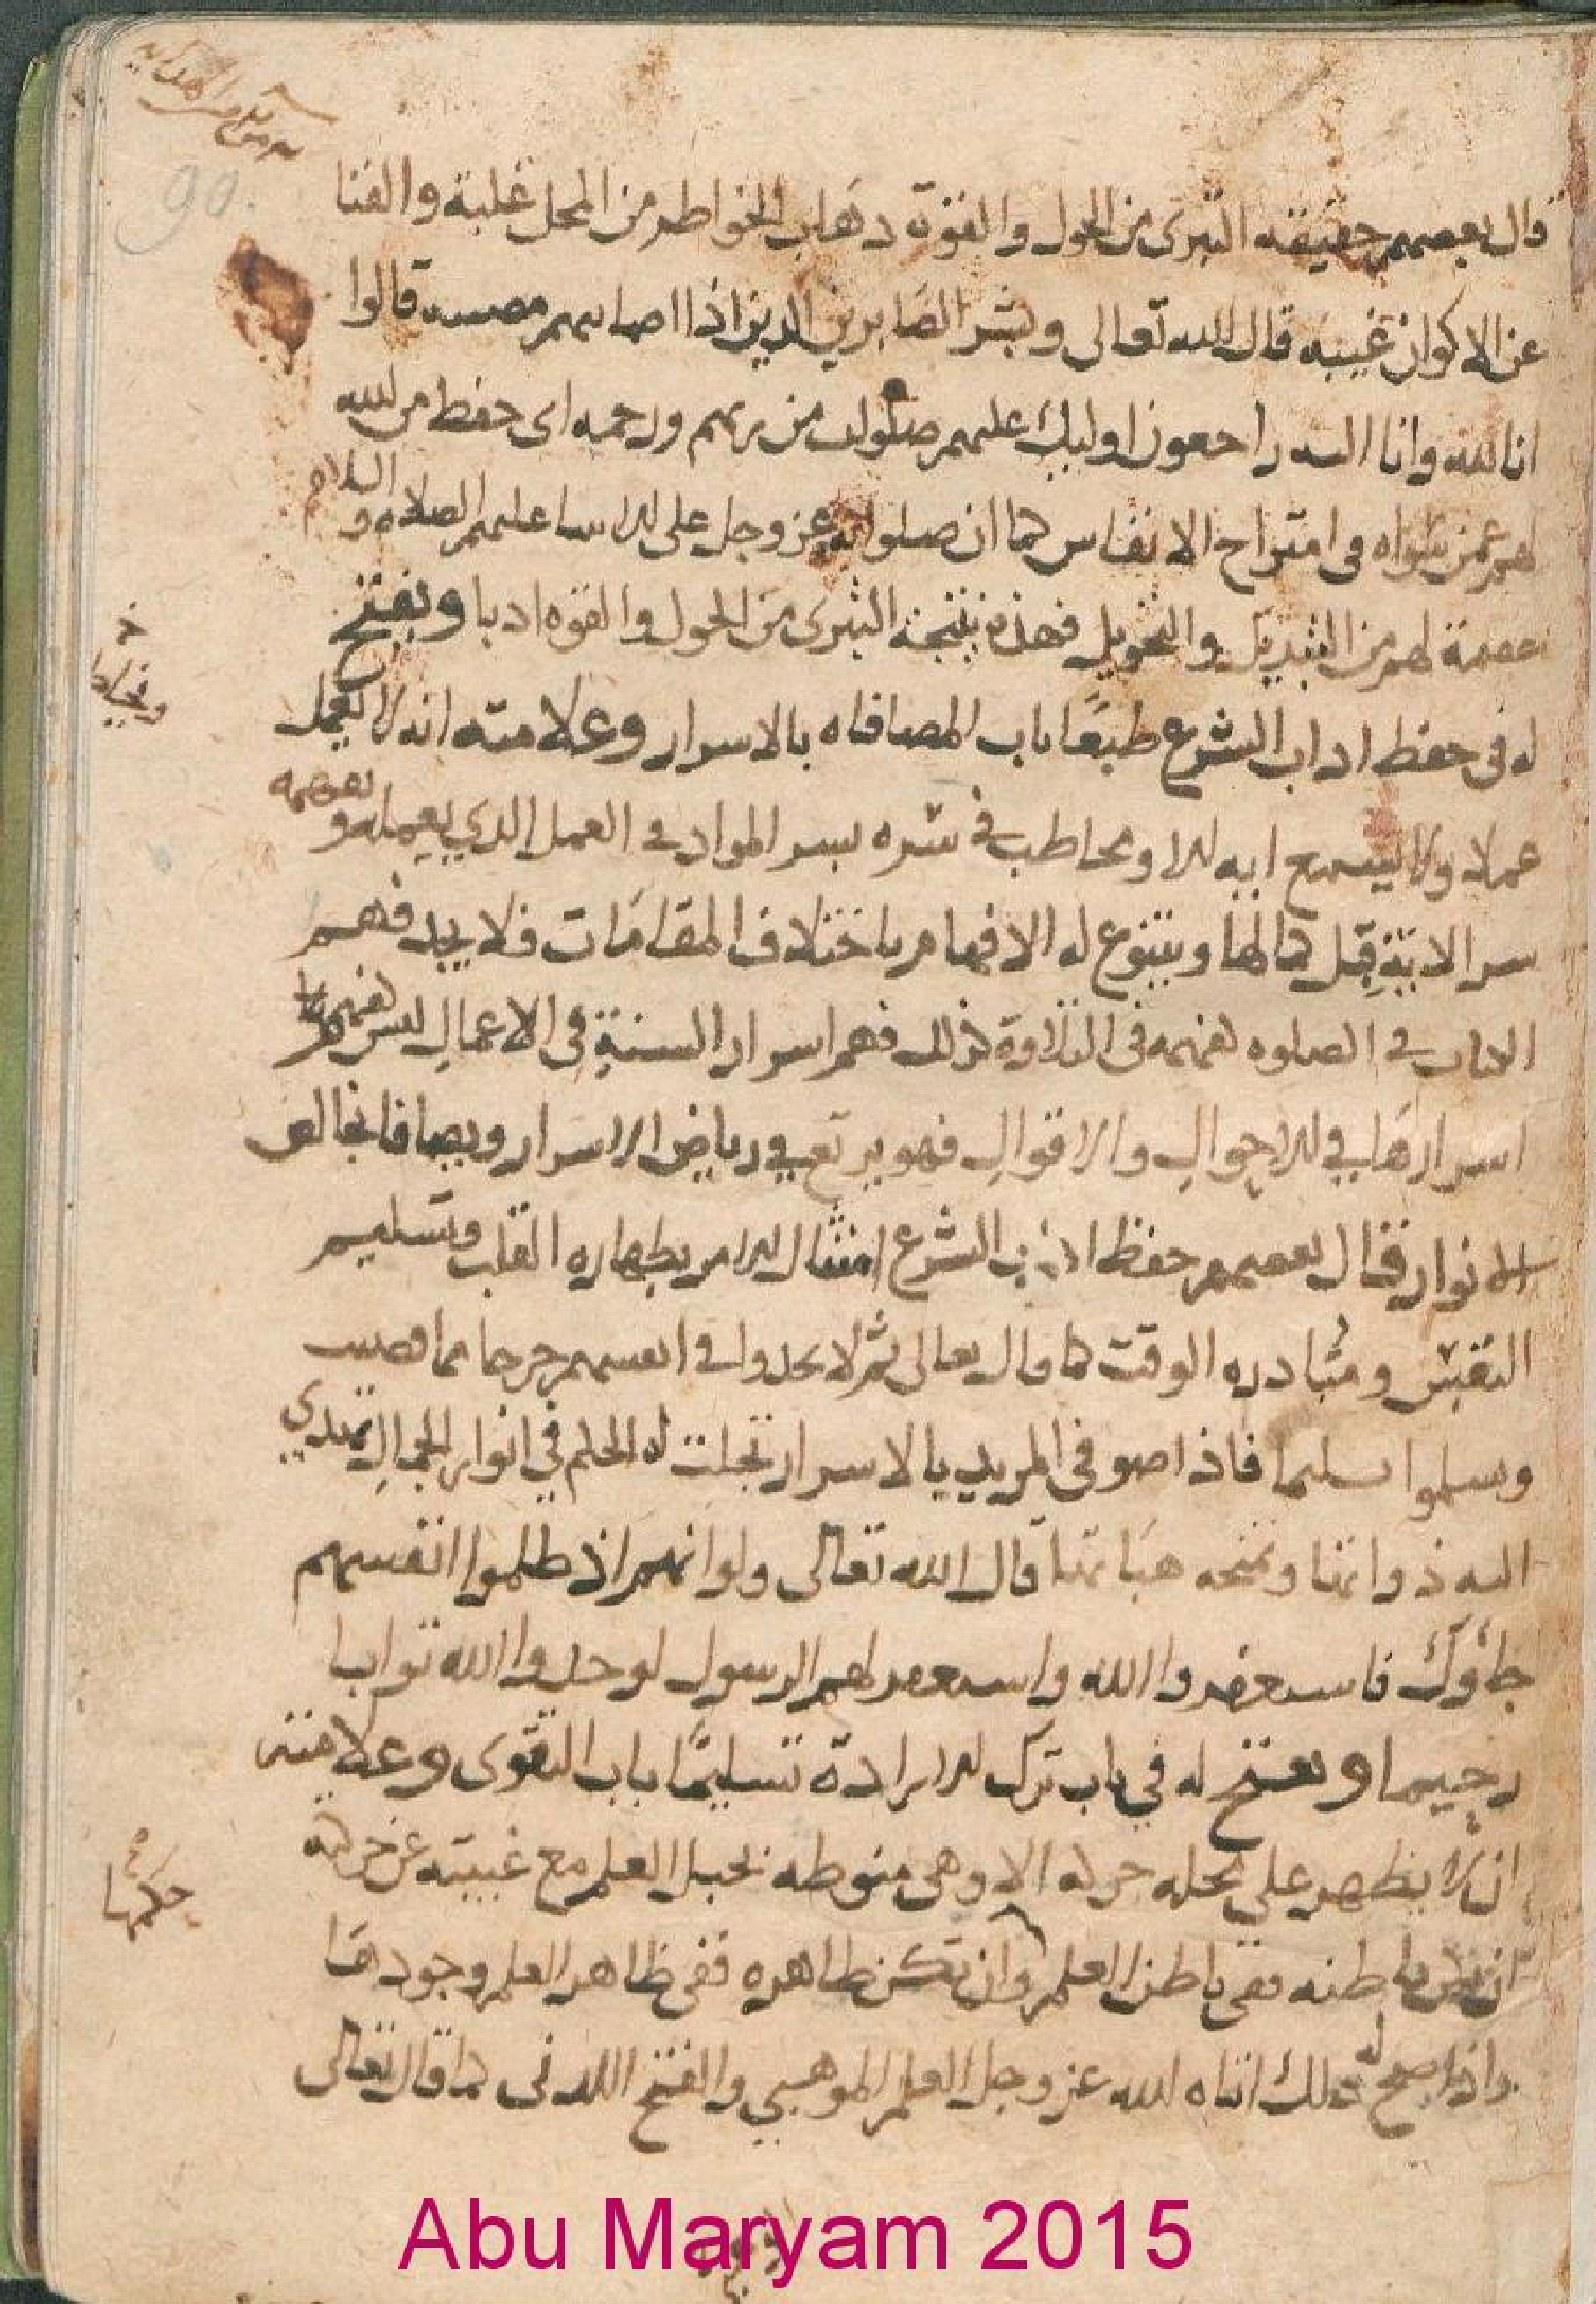 90
قال بعضهم حقيقة التبرى من الحول والقوة دهاب الخواطر من المحل غلبة والفنا
عن الاكوان غيبه قال الله تعالى وبشر الصابرين الدين اذا اصابتهم مصيبه قالوا
انا لله وانا اليه راجعون اوليك عليهم صلوات من ربهم ورحمه اى حفظ من الله
لهم عمن سواه فى امتزاج الانفاس كما ان صلواته عز وجل على الانبيا عليهم الصلاه والسلام
عصمة لهم من التبديل والتحويل فهذه نتيجة التبرى من الحول والقوه ادبا ويفتح
له فى حفظ اداب الشرع طبعًا باب المصافاه بالاسرار وعلامته انه لا يعمل
عملا ولا يسمع ايه الا ويخاطب فى سره بسر المراد فى العمل الدي يعمله و
سر الاية قبل كمالها ويتنوع له الافهام باختلاف المقامات فلا يجد فهم
فى الصلوه كفهمه فى التلاوة كذلك فهم اسرار السنة فى الاعمال ليس كفهم
اسرارها في الاحوال والاقوال فهو يرتع في رياض الاسرار ويصافا
الانوار فقال بعضهم حفظ اداب الشرع امتثال الامر بطهاره القلب وتسليم
النفس ومبادره الوقت كما قال تعالى ثم لا يجدوا فى انفسهم حرجا مما قضيت
ويسلموا تسليما فاذا صوفى المريد بالاسرار تجلت له الحكم في انوار الجمال تهدي
اليه ذواتها وتمنحه هباتها قال الله تعالى ولو انهم اذ ظلموا انفسهم
جاؤك فاستغفروا الله واستغفر لهم الرسول لوجدوا الله توابا
رحيما ويفتح له في باب ترك الارادة تسليمًا باب التقوى وعلامته
ان لا يظهر على محله حركه الا وهى منوطه بحبل العلم مع غيبته عن
ان تكن باطنه ففى باطن العلم وان تكن ظاهره ففى ظاهر العلم وجودها
واذا صح له ذلك اتاه الله عز وجل العلم الموهبي والفتح اللدنى كما قال تعالى
Abu Maryam 2015